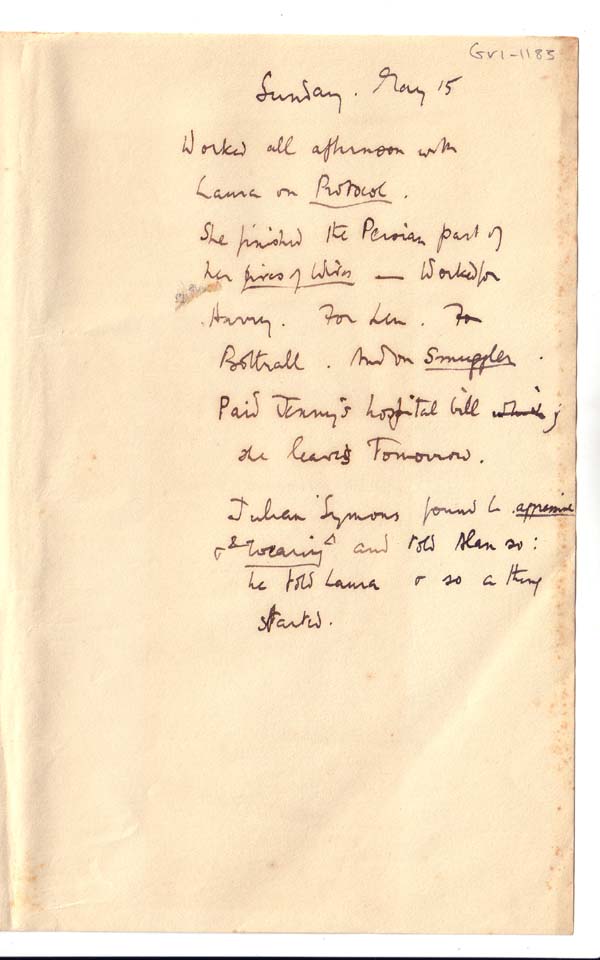 GVI-1183
Sunday. May 15
Worked all afternoon with
Laura on Protocol.
She finished the Persian part of
her lives of Wives — Worked for
Harry. For Len. Fo
Bottrall. And on Smuggler.
Paid Jenny's hospital bill which;
she leaves Tomorrow.
Julian Symons found L.
& & wearing and told Alan so:
he told Laura & so a thing
started.